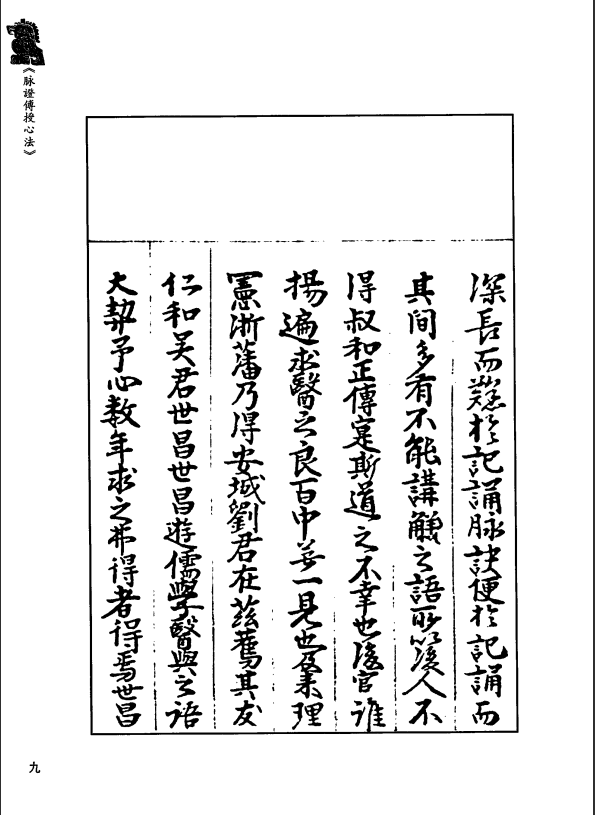 《脉證傳授心法》
深長而難於記誦脉訣便於記誦而
其間多有不能講觧之語所以後人不
得叔和正傳寔斯道之不幸也後官淮
揚遍求醫之良百中無一見也及柬理
憲浙藩乃得安城劉君在兹舊其友
仁和吴君世昌世昌遊儒學醫與之語
大契予心数年求之弗得者得焉世昌
九